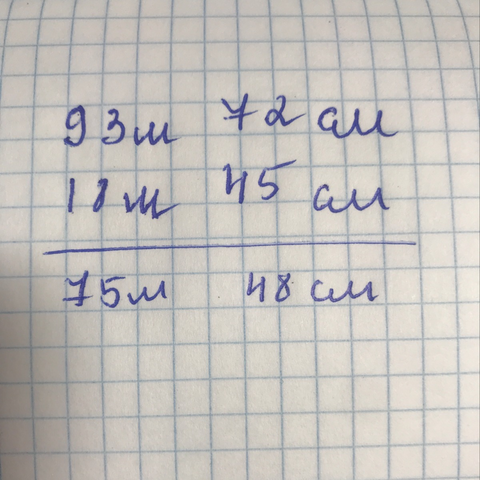 93м 72 см
18м 45 см
75м 48 см